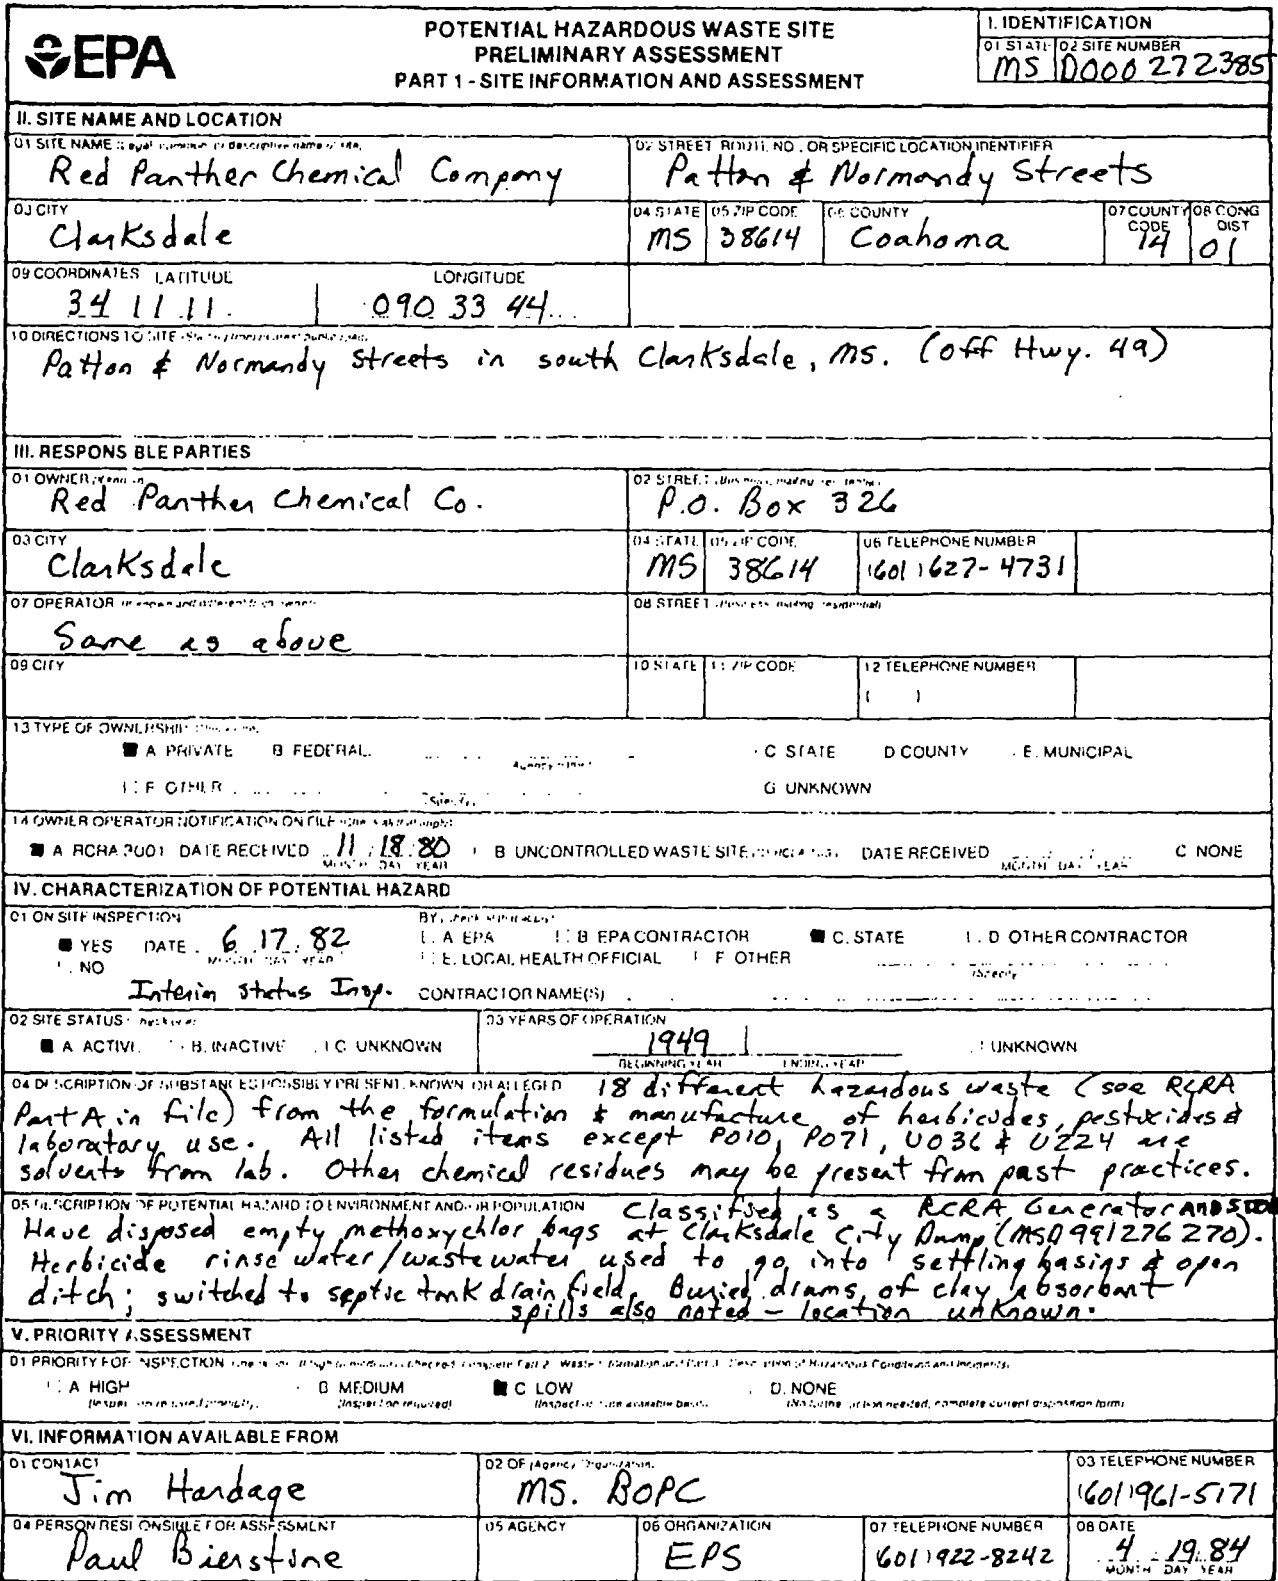 EPA
POTENTIAL HAZARDOUS WASTE SITE
PRELIMINARY ASSESSMENT
PART 1 - SITE INFORMATION AND ASSESSMENT
I. IDENTIFICATION
01 STATE 02 SITE NUMBER
MS D000272385
II. SITE NAME AND LOCATION
01 SITE NAME (Legal, common, or descriptive name of site)
Red Panther Chemical Company
02 STREET, ROUTE NO., OR SPECIFIC LOCATION IDENTIFIER
Patton & Normandy Streets
03 CITY
Clarksdale
04 STATE 05 ZIP CODE 06 COUNTY 07 COUNTY CODE 08 CONG DIST
MS 38614 Coahoma 14 01
09 COORDINATES LATITUDE LONGITUDE
34 11 11. 090 33 44
10 DIRECTIONS TO SITE
Patton & Normandy Streets in south Clarksdale, MS. (Off Hwy. 49)
III. RESPONS BLE PARTIES
01 OWNER
Red Panther Chemical Co.
02 STREET (Business, mailing, residential)
P.O. Box 326
03 CITY
Clarksdale
04 STATE 05 ZIP CODE 06 TELEPHONE NUMBER
MS 38614 (601) 627-4731
07 OPERATOR (If known and different from owner)
Same as above
08 STREET (Business, mailing, residential)
09 CITY
10 STATE 11 ZIP CODE 12 TELEPHONE NUMBER
( )
13 TYPE OF OWNERSHIP
A PRIVATE B FEDERAL C STATE D COUNTY E. MUNICIPAL
F OTHER G UNKNOWN
14 OWNER OPERATOR NOTIFICATION ON FILE
A RCRA 3001 DATE RECEIVED 11 18 80 B UNCONTROLLED WASTE SITE DATE RECEIVED C NONE
MONTH DAY YEAR MONTH DAY YEAR
IV. CHARACTERIZATION OF POTENTIAL HAZARD
01 ON SITE INSPECTION BY
YES DATE 6 17 82 A EPA B EPA CONTRACTOR C. STATE D OTHER CONTRACTOR
NO MONTH DAY YEAR E. LOCAL HEALTH OFFICIAL F OTHER (Specify)
Interim Status Insp. CONTRACTOR NAME(S)
02 SITE STATUS 03 YEARS OF OPERATION
A ACTIVE B. INACTIVE C UNKNOWN 1949 UNKNOWN
BEGINNING YEAR ENDING YEAR
04 DESCRIPTION OF SUBSTANCES POSSIBLY PRESENT, KNOWN OR ALLEGED 18 different hazardous waste (see RCRA
Part A in file) from the formulation & manufacture of herbicides, pesticides &
laboratory use. All listed items except P010, P071, U036 & U224 are
solvents from lab. Other chemical residues may be present from past practices.
05 DESCRIPTION OF POTENTIAL HAZARD TO ENVIRONMENT AND/OR POPULATION Classified as a RCRA Generator AND
Have disposed empty methoxychlor bags at Clarksdale City Dump (MSD991276270).
Herbicide rinse water/wastewater used to go into settling basins & open
ditch; switched to septic tank drain field. Buried drums of clay absorbant
spills also noted - location unknown.
V. PRIORITY ASSESSMENT
01 PRIORITY FOR INSPECTION
A HIGH B MEDIUM C LOW D. NONE
(Inspection required) (Inspect on time available basis) (No further action needed, complete current disposition form)
VI. INFORMATION AVAILABLE FROM
01 CONTACT
Jim Hardage
02 OF (Agency/Organization)
MS. BOPC
03 TELEPHONE NUMBER
(601) 961-5171
04 PERSON RESPONSIBLE FOR ASSESSMENT
Paul Bierstine
05 AGENCY 06 ORGANIZATION
EPS
07 TELEPHONE NUMBER
(601) 922-8242
08 DATE
4 19 84
MONTH DAY YEAR